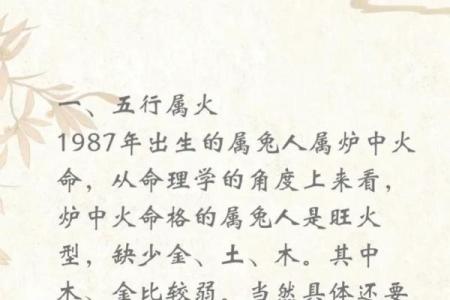 一、五行属火
1987年出生的属兔人属炉中火
命，从命理学的角度上来看，
炉中火命格的属兔人是旺火
型，缺少金、土、木。其中
木、金比较弱。当然具体还要